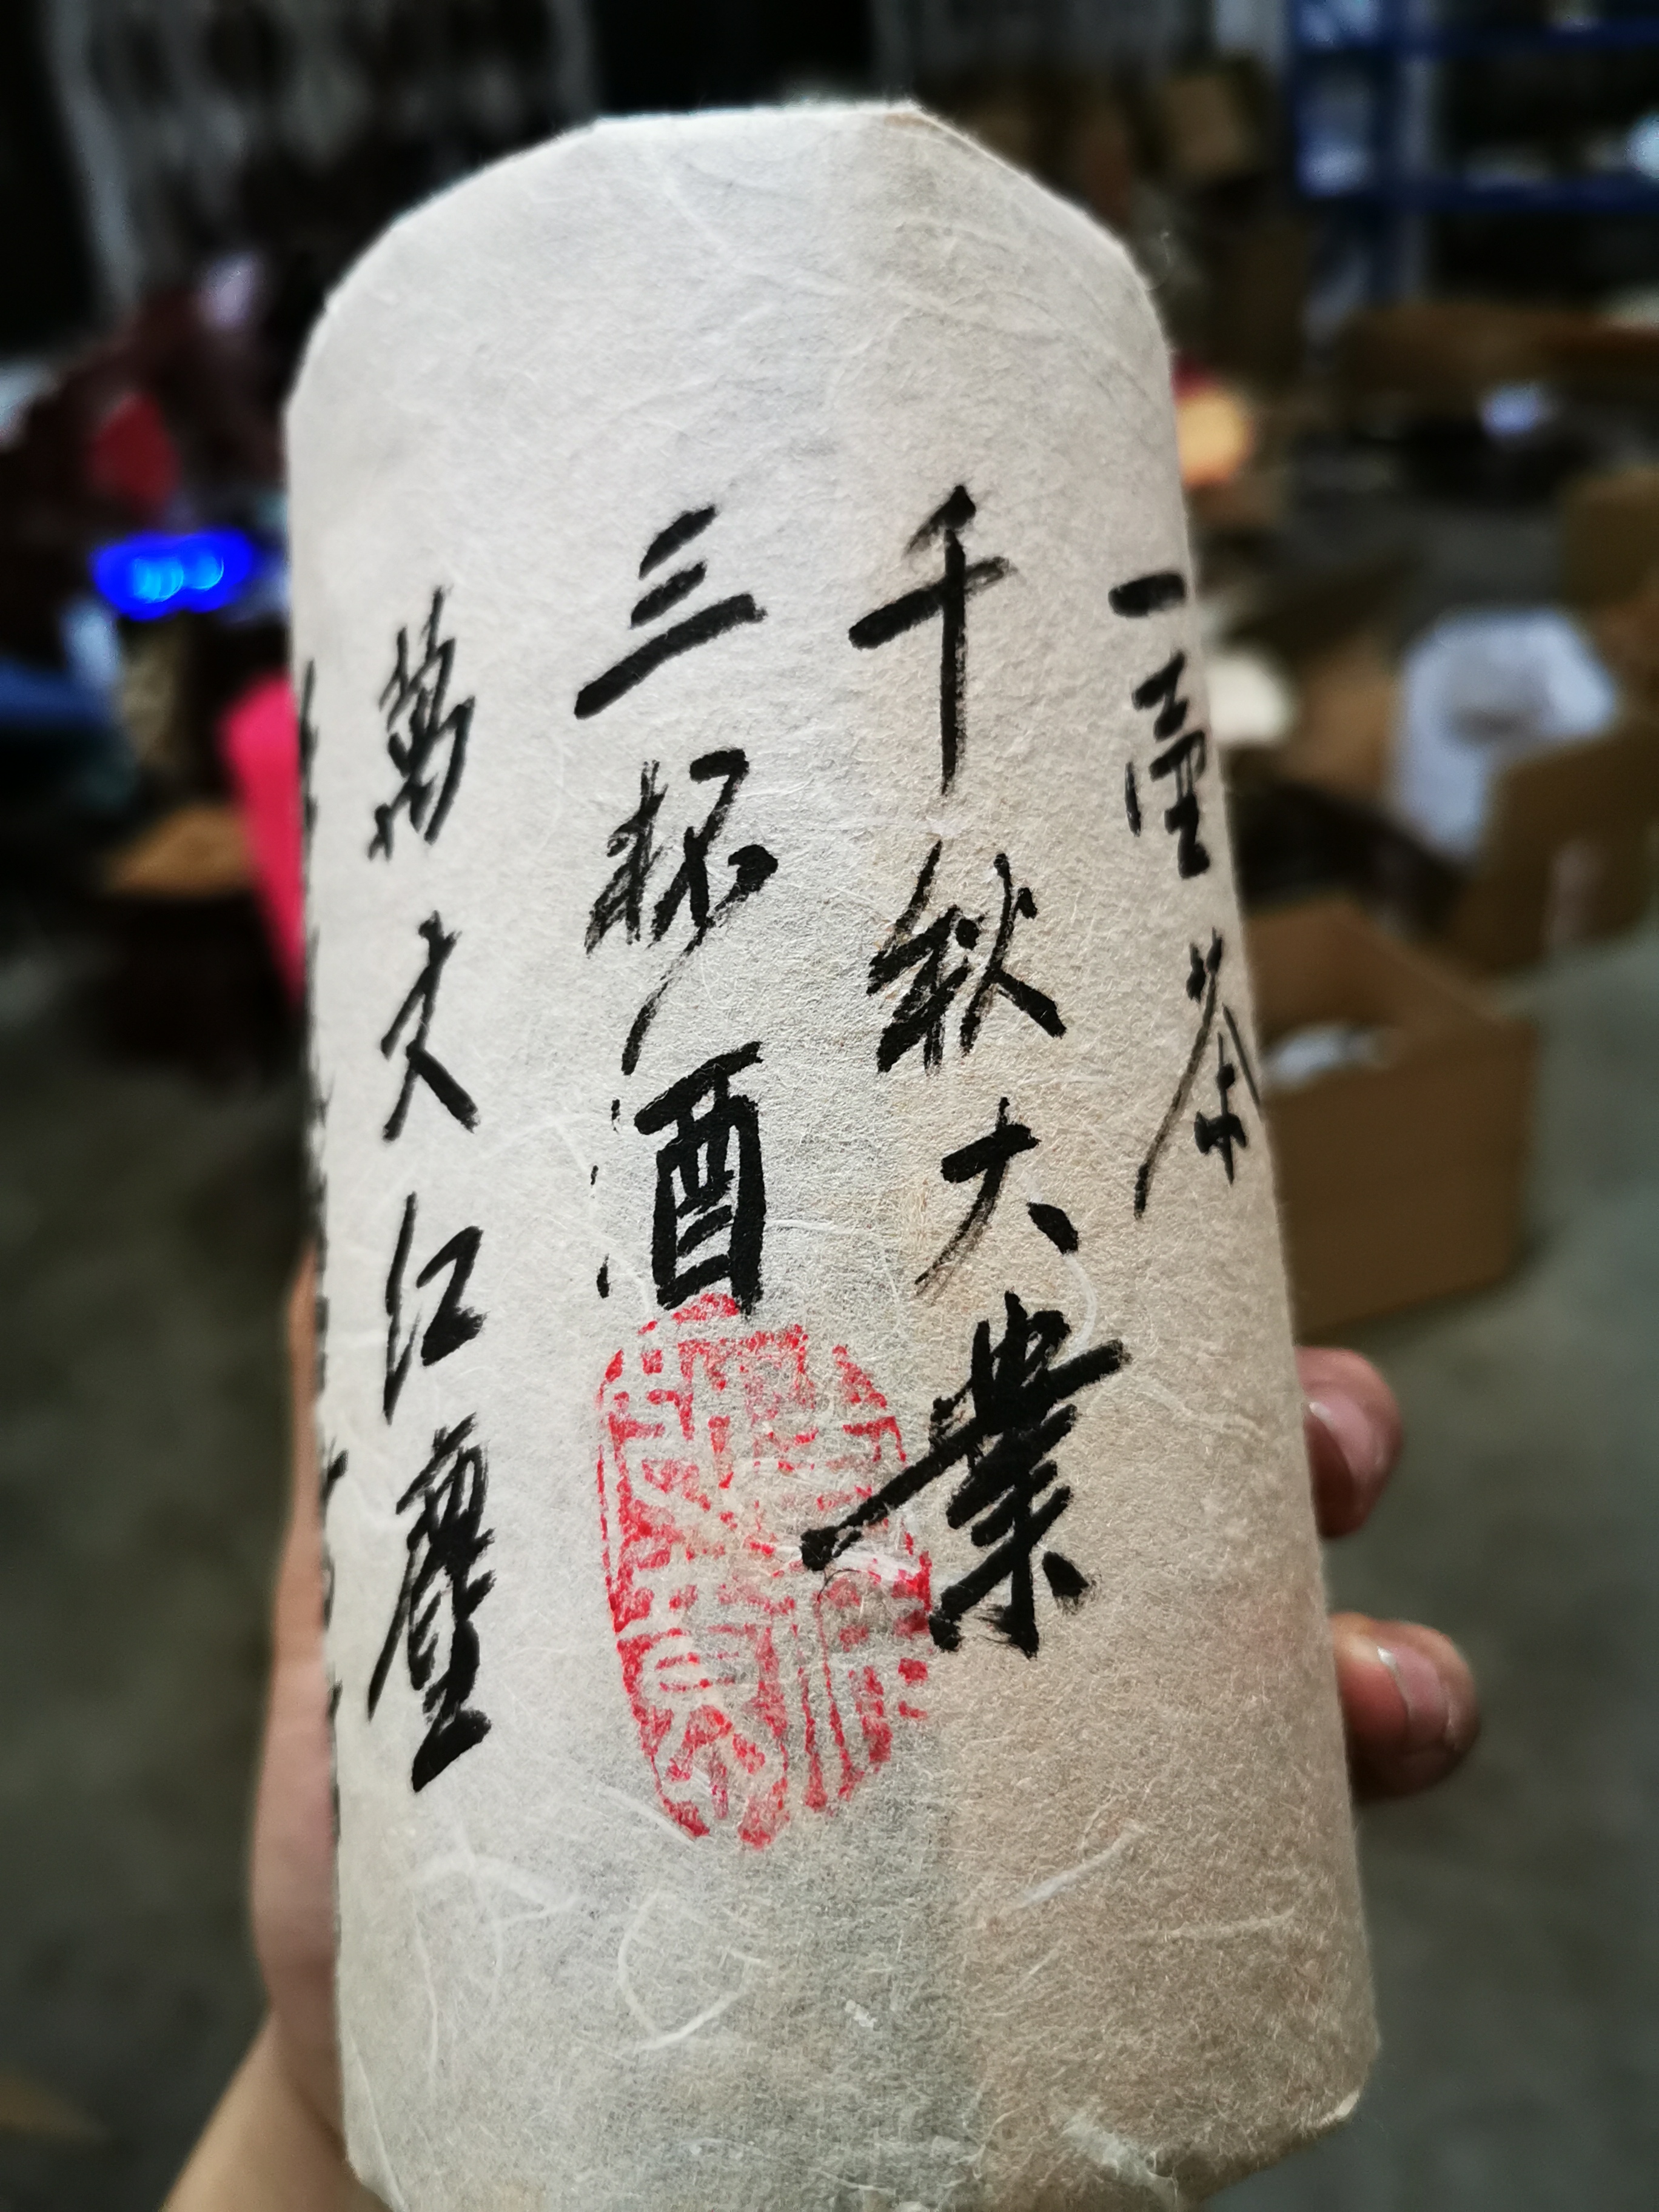 一壺茶
千秋大業
三杯酒
萬丈紅塵